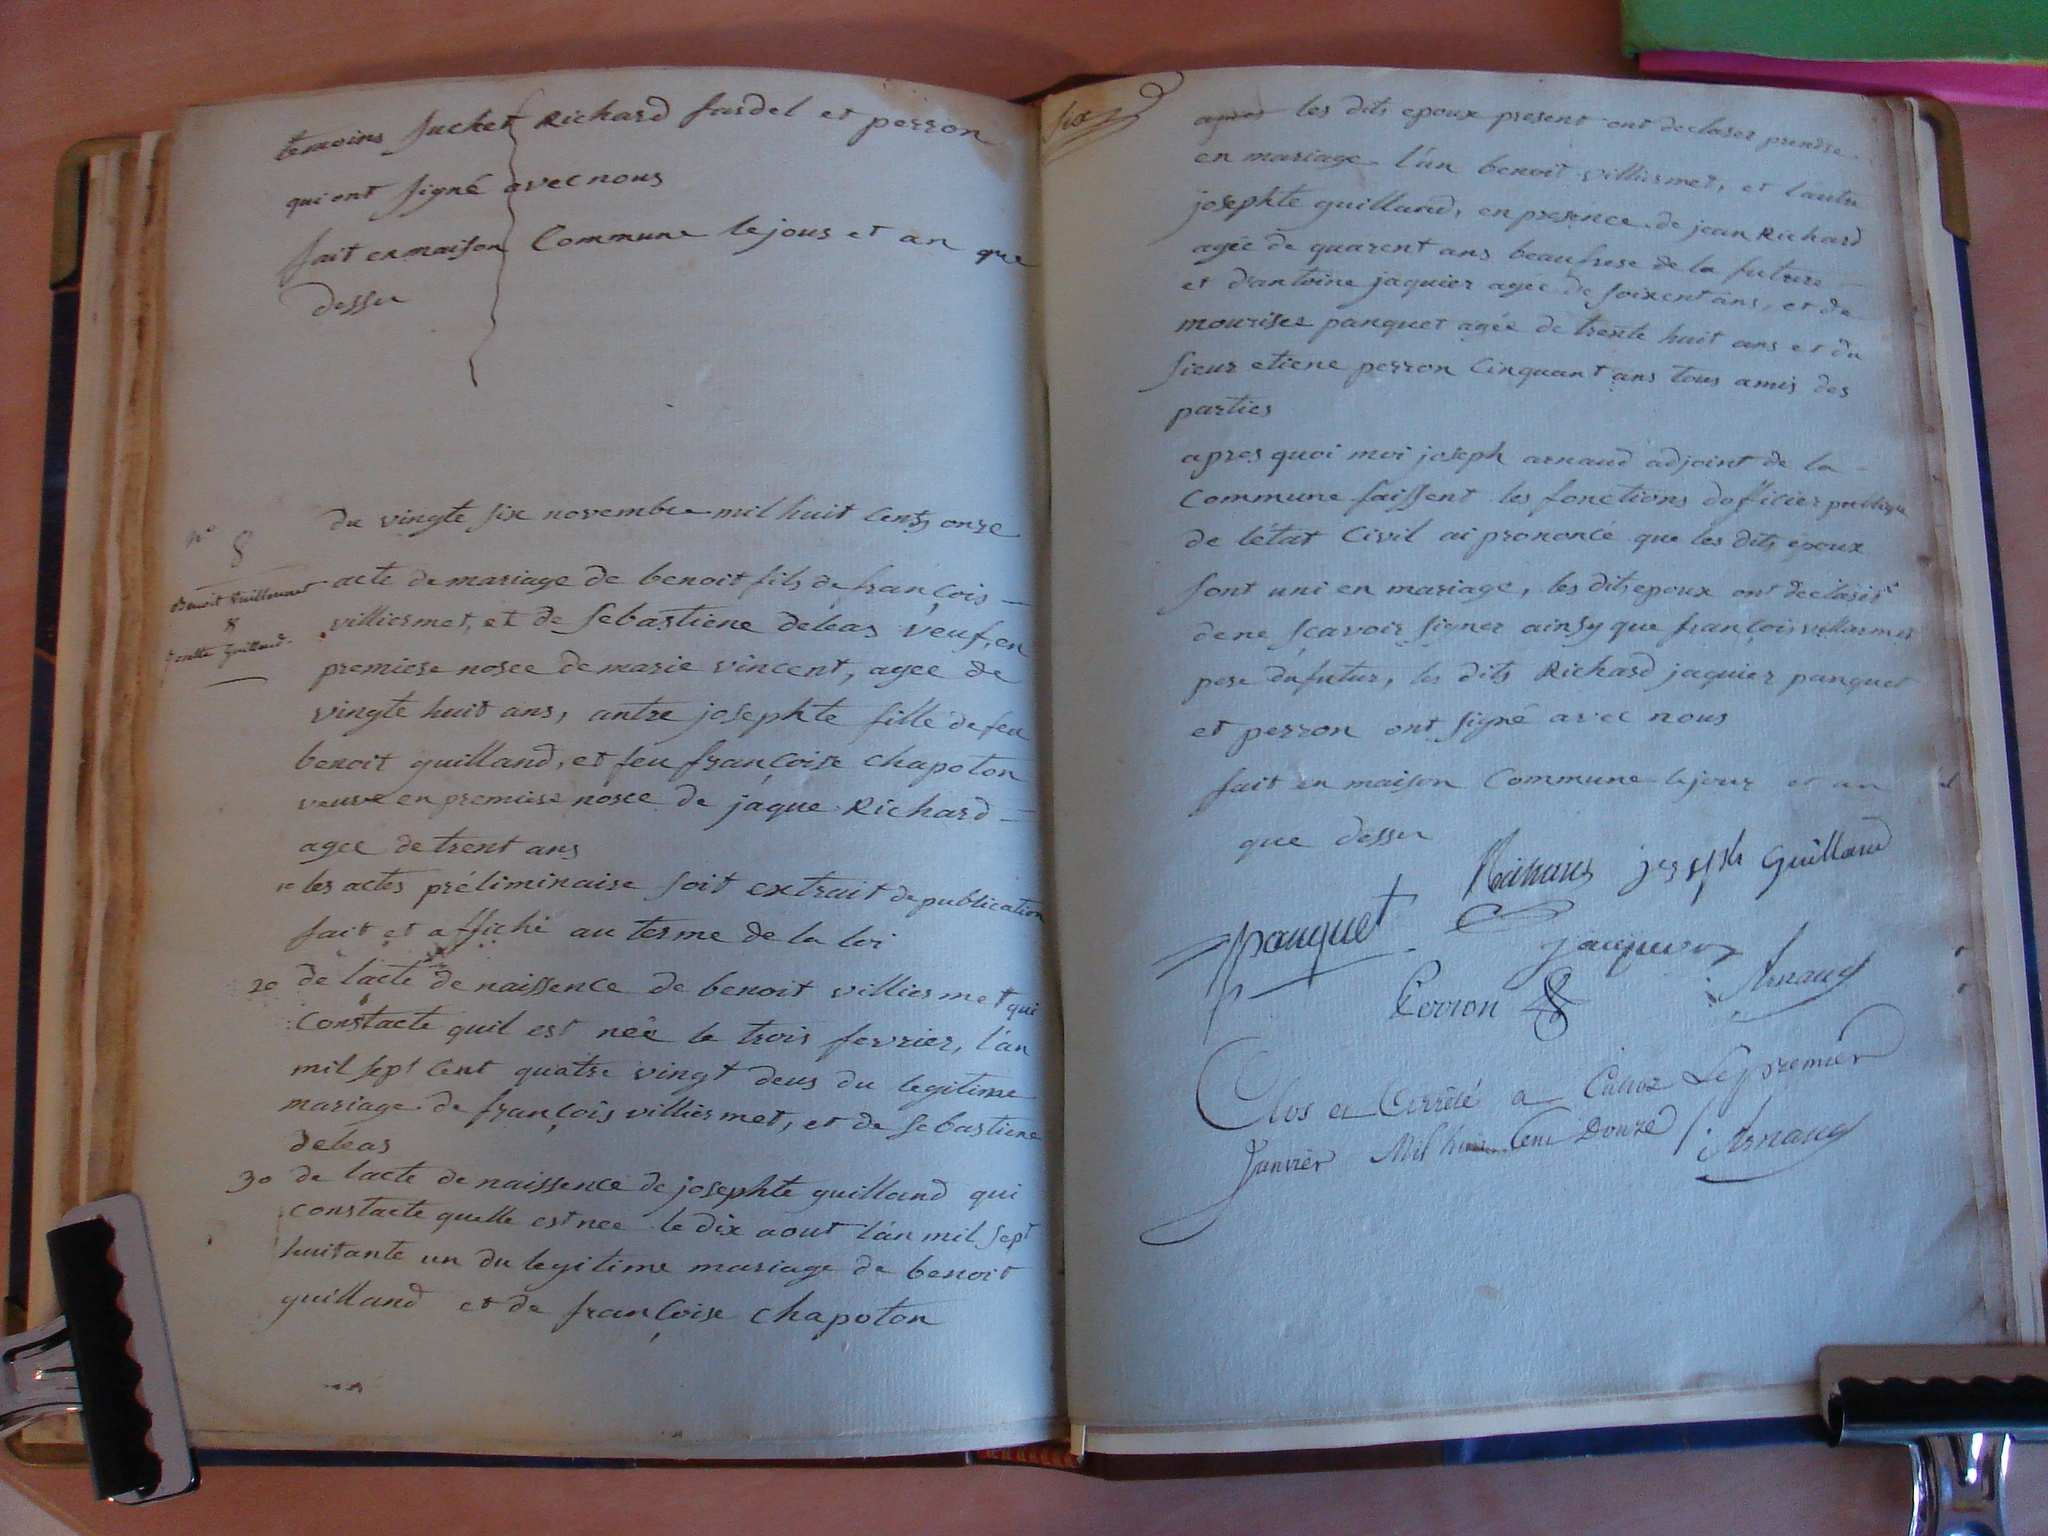 temoins suchet Richard fardel et perron
qui ont signé avec nous
fait en maison Commune le jour et an que
dessu
du vingte six novembre mil huit Cents onze
n°
8
Benoit Vuillermet
&
Josette Guilland.
acte de mariage de benoit fils de françois
villiermet, et de sebastiene deléas veuf, en
premiere nosee de marie vincent, agee de
vingte huit ans, antre josephte fille de feu
benoit guilland, et feu françoise chapoton
veuve en premiere nosee de jaque Richard
agee de trent ans
1° les actes préliminaire soit extrait de publication
fait et affiché au terme de la loi
2° de lacte de naissence de benoit villiermet qui
Constacte quil est née le trois fevrier, l'an
mil sept Cent quatre vingt deus du legitime
mariage de françois villiermet, et de sebastiene
deléas
3° de lacte de naissence de josephte guilland qui
Constacte quelle est nee le dix aout l'an mil sept
huitante un du legitime mariage de benoit
guilland et de françoise chapoton
six
apres les dits epoux present ont declarer prendre
en mariage l'un benoit villiermet, et lautre
josephte guilland, en presence de jean Richard
agée de quarent ans beaufrere de la future
et d'antoine jaquier agee de soixent ans, et de
mourisee panquet agée de trente huit ans et du
sieur etiene perron Cinquant ans tous amis des
parties
apres quoi moi joseph arnaud adjoint de la
Commune faissent les fonctions dofficier publique
de létat Civil ai prononcé que les dits epoux
sont uni en mariage, les dits epoux ont declarer
de ne sçavoir signer ainsy que françois villiermet
pere du futur, les dits Richard jaquier panquet
et perron ont signé avec nous
fait en maison Commune le jour et an
que dessu
Richard joseph Guilland
panquet jaquier
Perron Arnaud
Clos et Arrêté a Le premier
Janvier Mil huit Cent Douze Arnaud